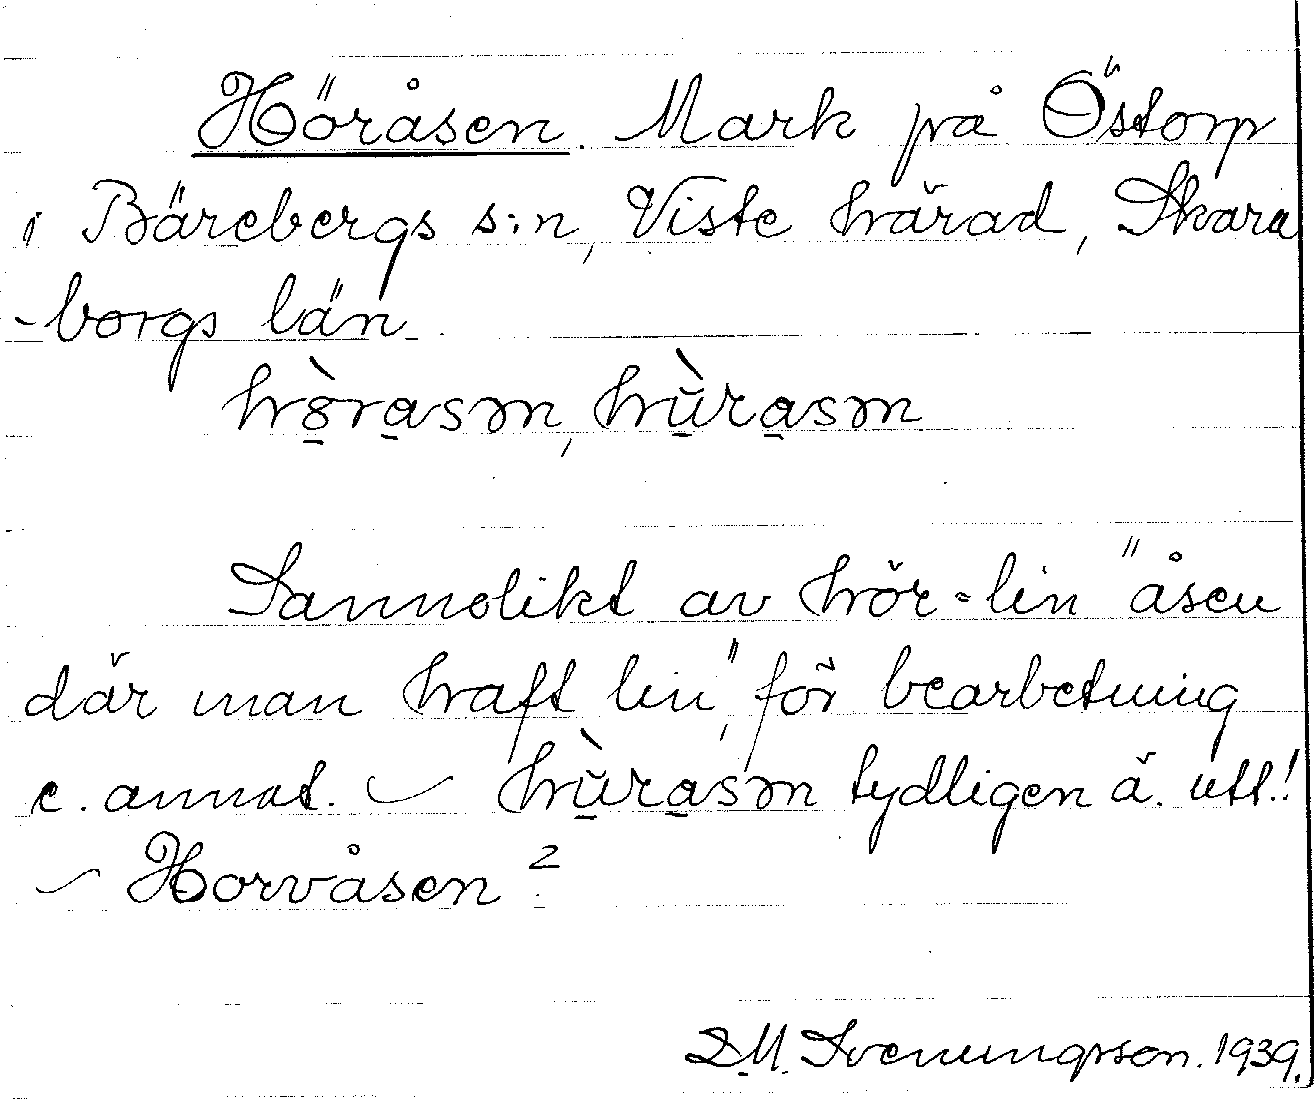 Höråsen. Mark på Östorp
i Bärebergs s:n, Viste härad, Skara
-borgs län.
hò̤rasən, hùrasən
Sannolikt av hör = lin "åsen
där man haft lin", för bearbetning
e. annat. – hùrasən tydligen ä. utt.!
– Horvåsen?
D.M. Svenungsson. 1939.